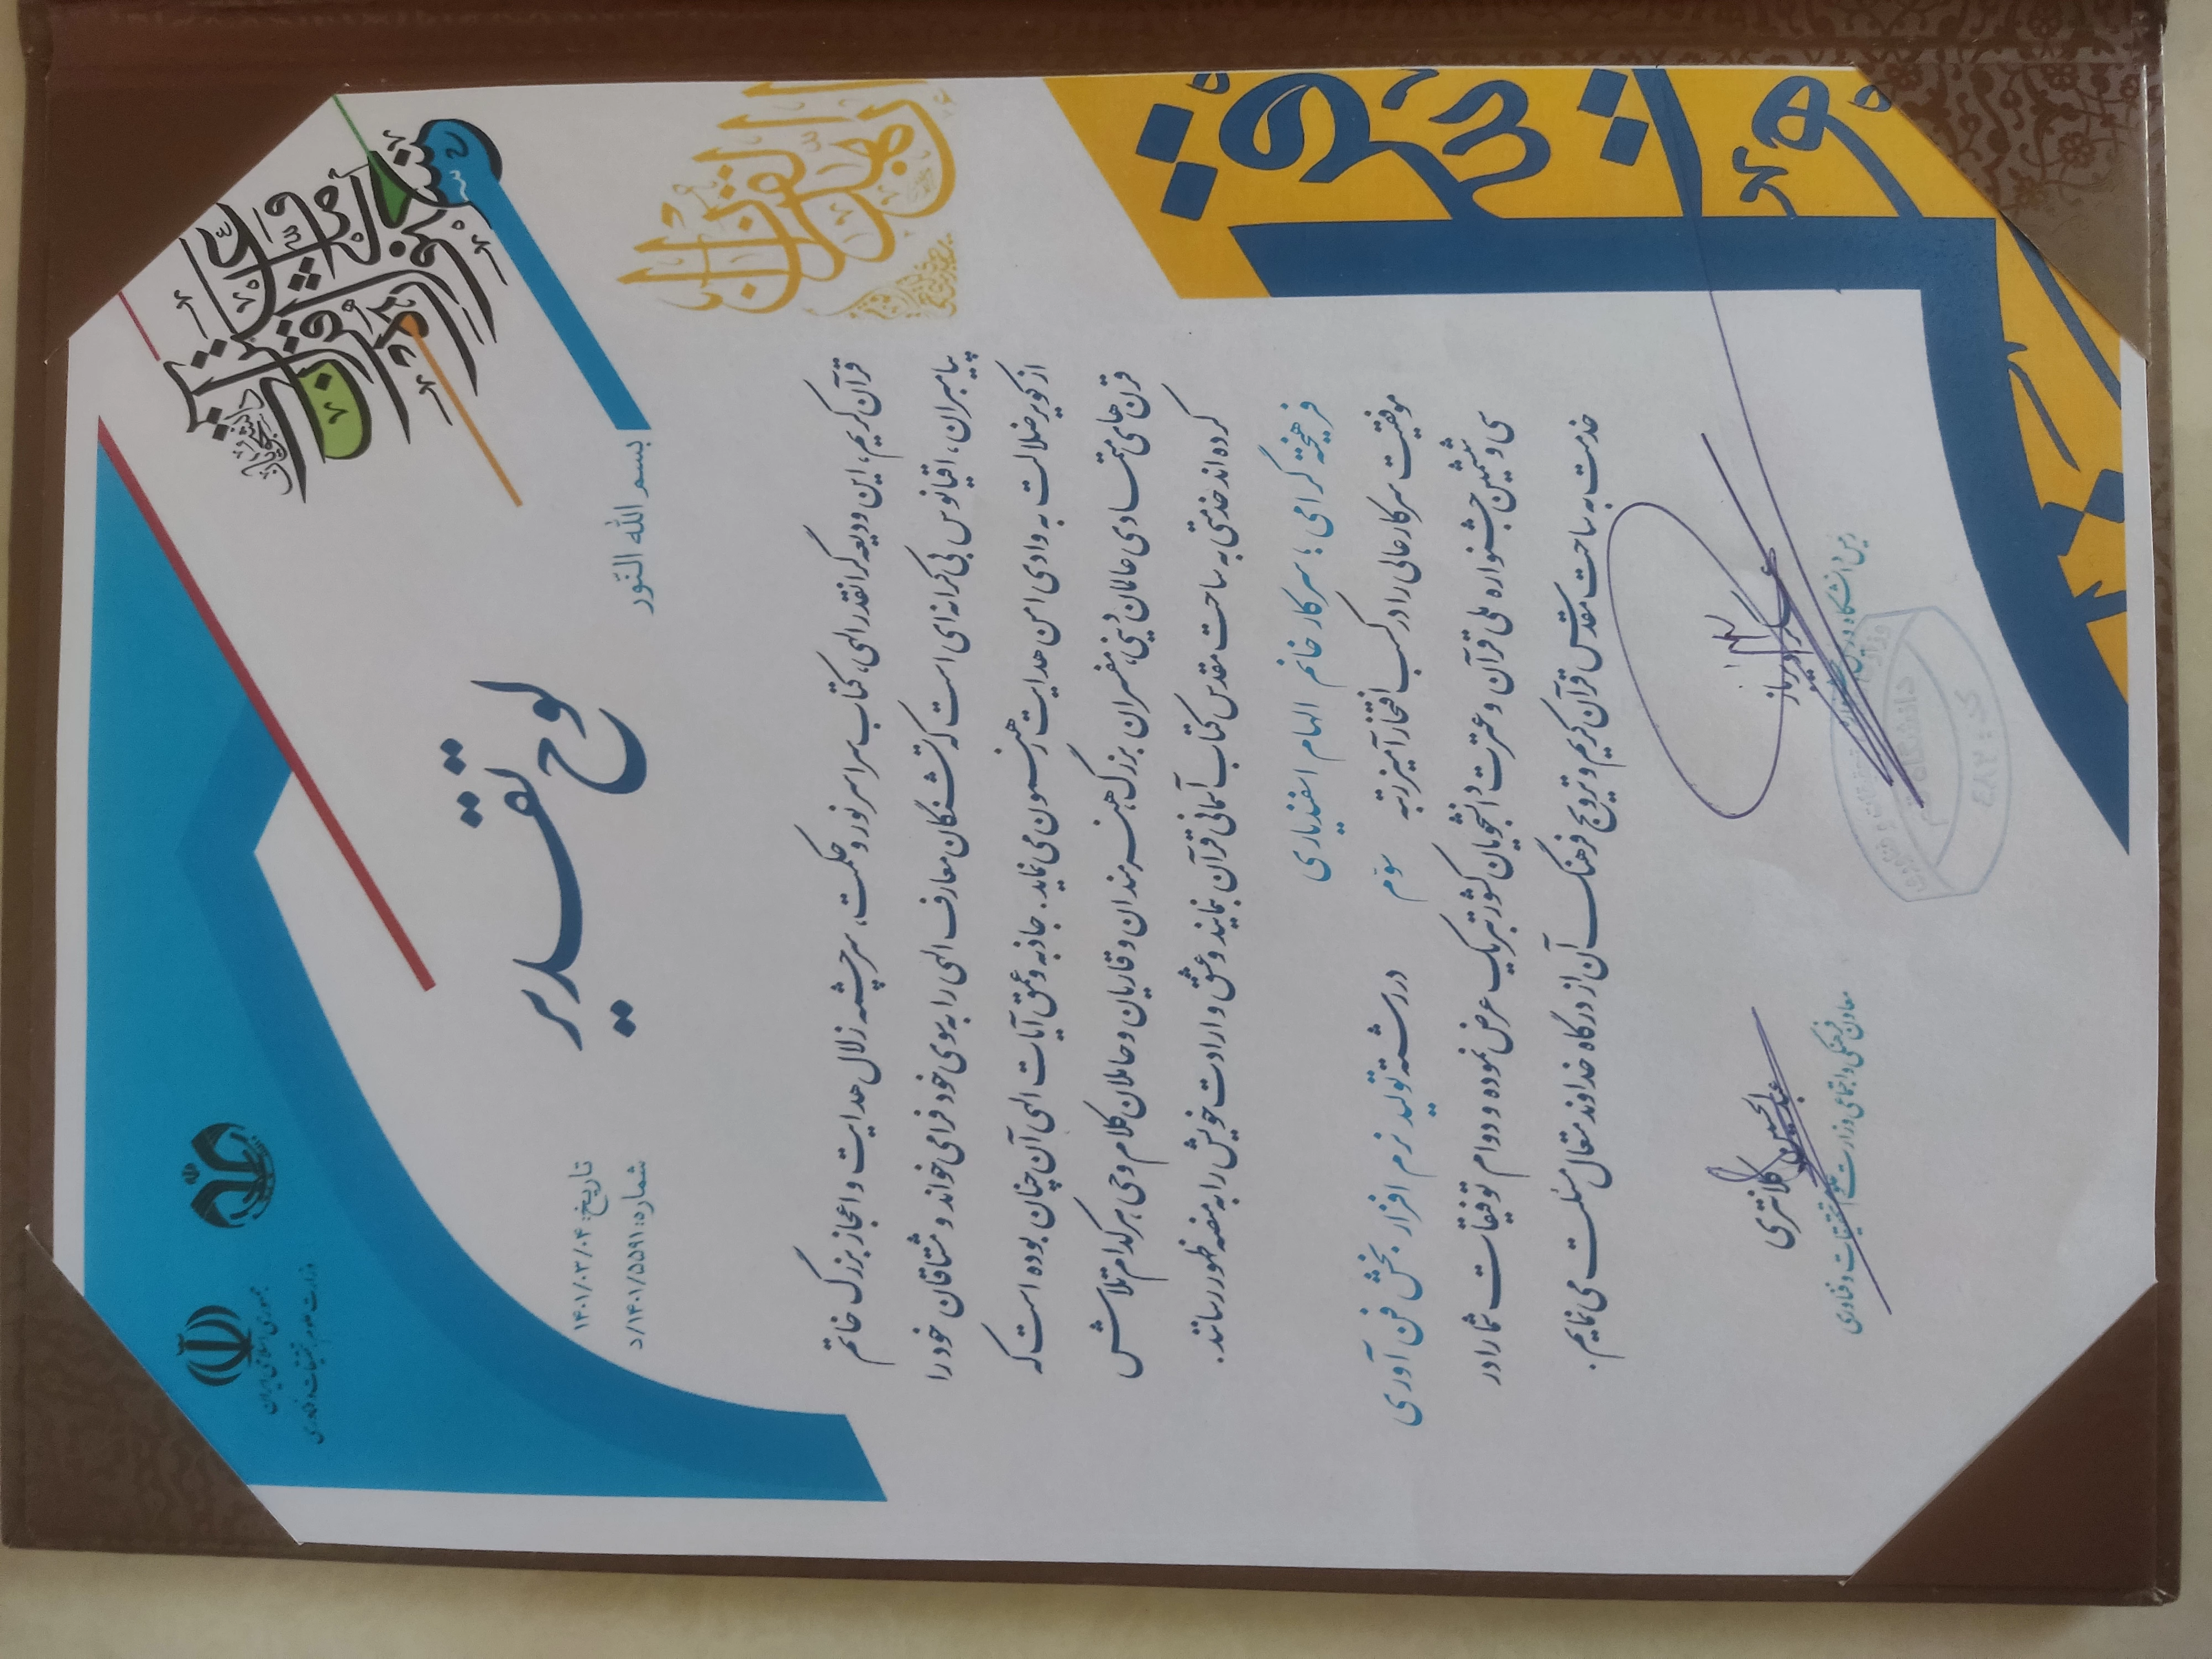 جمهوری اسلامی ایران
وزارت علوم تحقیقات و فناوری
سی و ششمین جشنواره ملی قرآن و عترت
دانشجویان
تاریخ: ۱۴۰۱/۰۳/۰۴
شماره: ۵۵۹۱/۱۴۰۱/د
لوح تقدیر
بسم الله النّور
قرآن کریم، این ودیعه گرانقدر الهی، کتاب سراسر نور و حکمت، سرچشمه زلال هدایت و اعجاز بزرگ خاتم
پیامبران، اقیانوس بی کرانه ای است که تشنگان معارف الهی را به سوی خود فرا می خواند و مشتاقان خود را
از کویر ضلالت به وادی امن هدایت رهنمون می نماید. جاذبه و عمق آیات الهی آن چنان بوده است که
قرن های متمادی عالمان دینی، مفسران بزرگ، هنرمندان و قاریان و حاملان کلام وحی هر کدام تلاش
کرده اند خدمتی به ساحت مقدس کتاب آسمانی قرآن بنمایند و عشق و ارادت خویش را به منصه ظهور رسانند.
فرهیخته گرامی ؛ سرکار خانم الهام اسفندیاری
موفقیت سرکار عالی را در کسب افتخارآمیز رتبه سوّم در رشته تولید نرم افزار بخش فن آوری
سی و ششمین جشنواره ملی قرآن و عترت دانشجویان کشور تبریک عرض نموده و دوام توفیقات شما را در
خدمت به ساحت مقدس قرآن کریم و ترویج فرهنگ آن از درگاه خداوند متعال مسئلت می نمایم.
عبدالحسین کلانتری
معاون فرهنگی و اجتماعی وزارت علوم، تحقیقات و فناوری
دانشگاه قم
کد: ۴۸۲